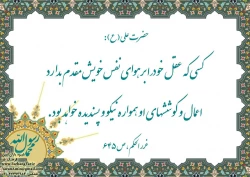 حضرت علی (ع):
کسی که عقل خود را بر هوای نفس خویش مقدم بدارد
اعمال و کوششهای او همواره نیکو و پسندیده خواهد بود.
غررالحکم، ص ۶۴۵